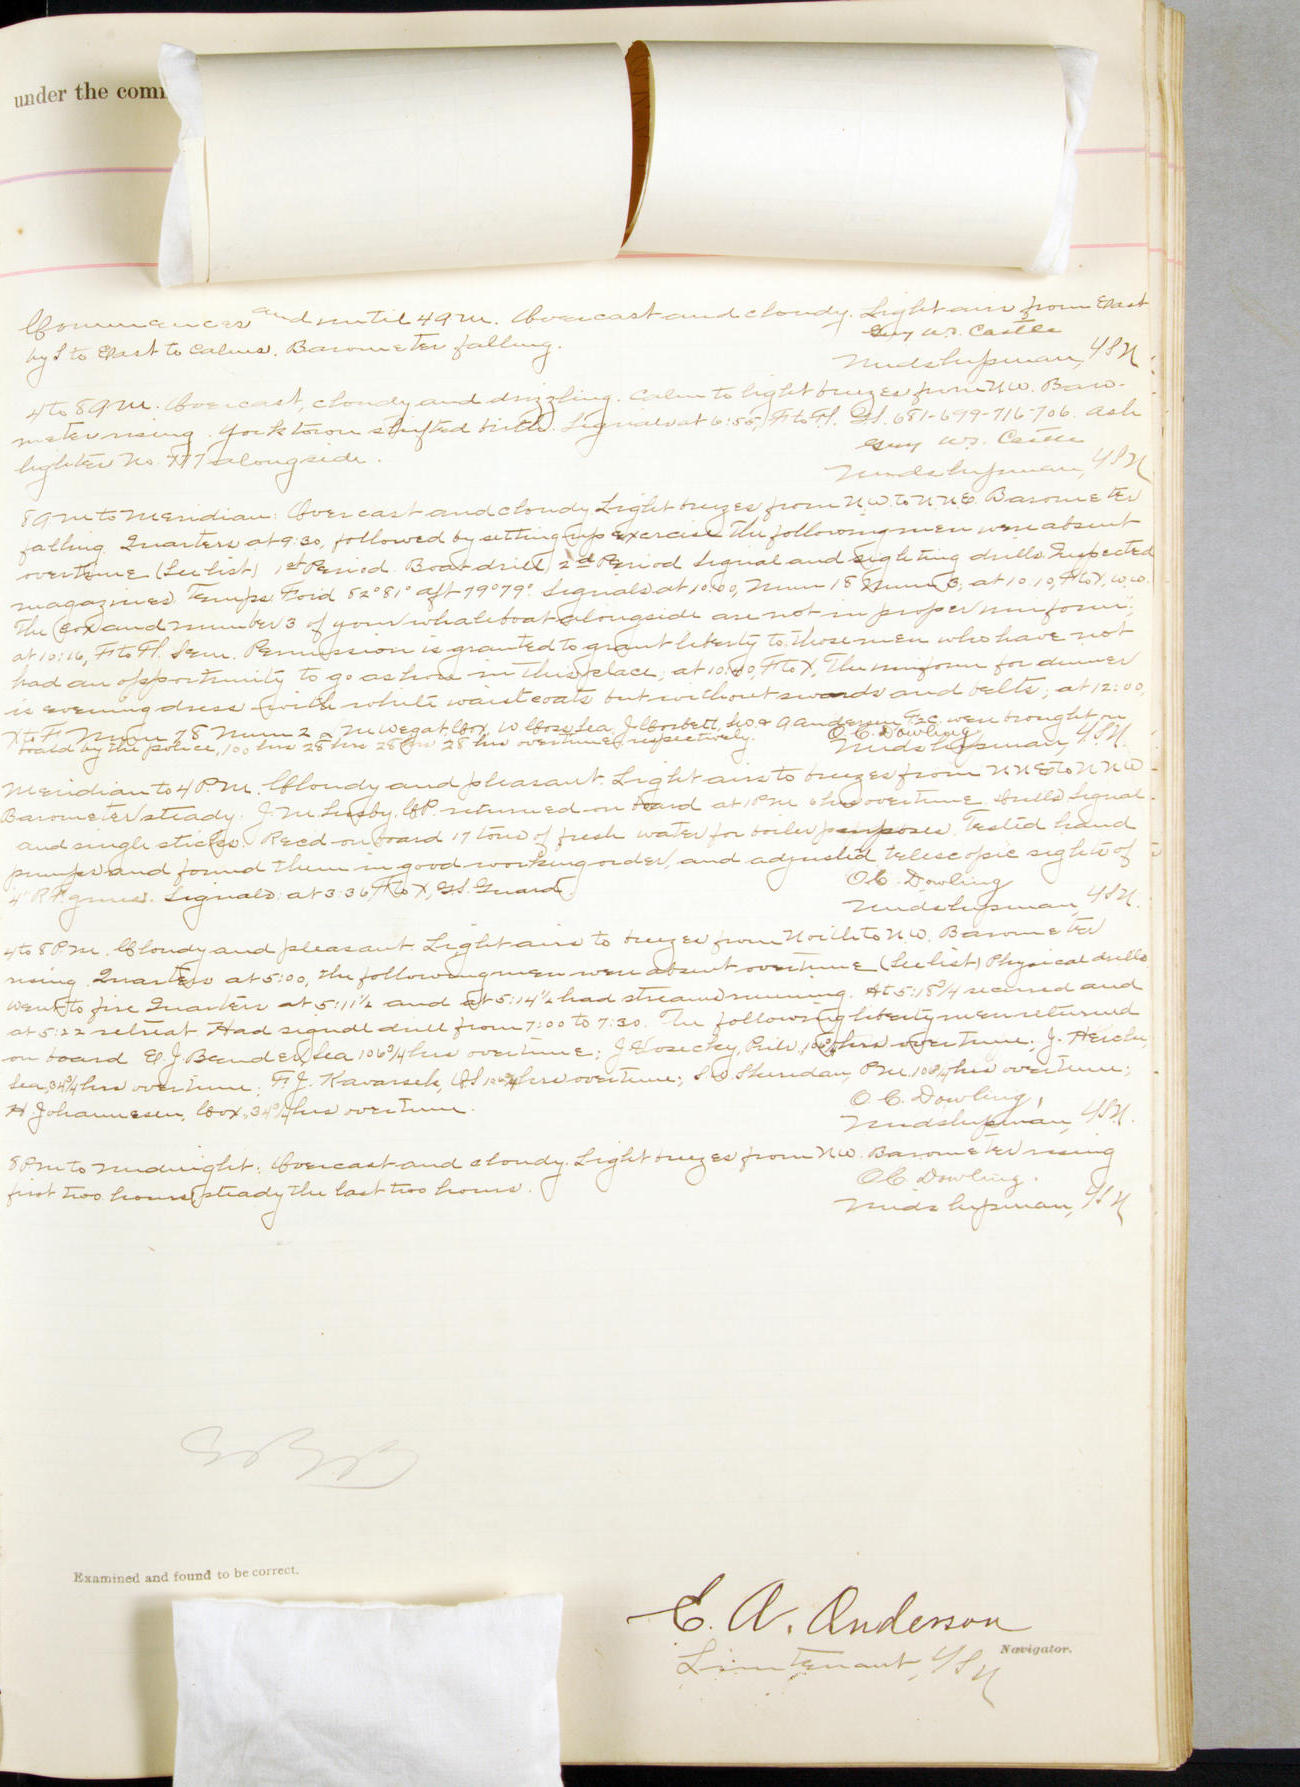 under the com
Commences and until 4 a m. Overcast and cloudy. Light airs from East
by S to East to calms. Barometer falling.
Guy W. S. Castle
Midshipman, USN
4 to 8 a m. Overcast, cloudy and drizzling. Calm to light breezes from N.W. Baro-
meter rising. Yorktown shifted birth. Signals at 6:55, F to H. G.S. 681-699-716-706. Ash
lighter No. 777 alongside.
Guy W. S. Castle
Midshipman, USN
8 a m to Meridian: Overcast and cloudy Light breezes from N.W. to N.N.E. Barometer
falling. Quarters at 9:30, followed by setting up exercise The following men were absent
overtime (See list) 1st Period. Boat drill 2d Period Signal and sighting drills Inspected
magazines Temps. Ford 82° 81° aft 79° 79° Signals at 10:00, Num 18 Num 3; at 10:10, F to X, W.W.
The Cox and number 3 of your whaleboat alongside are not in proper uniform;
at 10:16, F to H. Sem. Permission is granted to grant liberty to those men who have not
had an opportunity to go ashore in this place; at 10:40, F to X, The uniform for dinner
is evening dress with white waistcoats but without swords and belts; at 12:00,
X to F Num 78 Num 2 were brought on
board by the police, 100 hrs 28 hrs 28 hrs 28 hrs overtime respectively.
O. C. Dowling
Midshipman, USN.
Meridian to 4 P.M. Cloudy and pleasant. Light airs to breezes from N.N.E. to N.N.W
Barometer steady. J. M. returned on board at 1 P.M. overtime. Drills Signal
and single sticks. Rec'd on board 17 tons of fresh water for boiler purposes. Tested hand
pumps and found them in good working order, and adjusted telescopic sights of
4" R.F. guns. Signals: at 3:36, F to X, G.S. Guard.
O. C. Dowling
Midshipman, USN.
4 to 8 P.M. Cloudy and pleasant. Light airs to breezes from North to N.W. Barometer
rising. Quarters at 5:00, the following men were absent overtime (See list) Physical drills
Went to fire Quarters at 5:11½ and at 5:14½ had streams running. At 5:18¾ secured and
at 5:22 retreat. Had signal drill from 7:00 to 7:30. The following liberty men returned
on board E. J. Bender, Sea 106¾ hrs overtime; J. 106¾ hrs overtime; J.
Sea, 34¾ hrs overtime; F. J. hrs overtime; S. D. Sheridan, hrs overtime;
H Johannesen, Cox, 34¾ hrs overtime.
O. C. Dowling,
Midshipman, USN.
8 P.M. to midnight: Overcast and cloudy. Light breezes from N.W. Barometer rising
first two hours, steady the last two hours.
O. C. Dowling.
Midshipman, USN
Examined and found to be correct.
E. A. Anderson
Lieutenant, USN
Navigator.